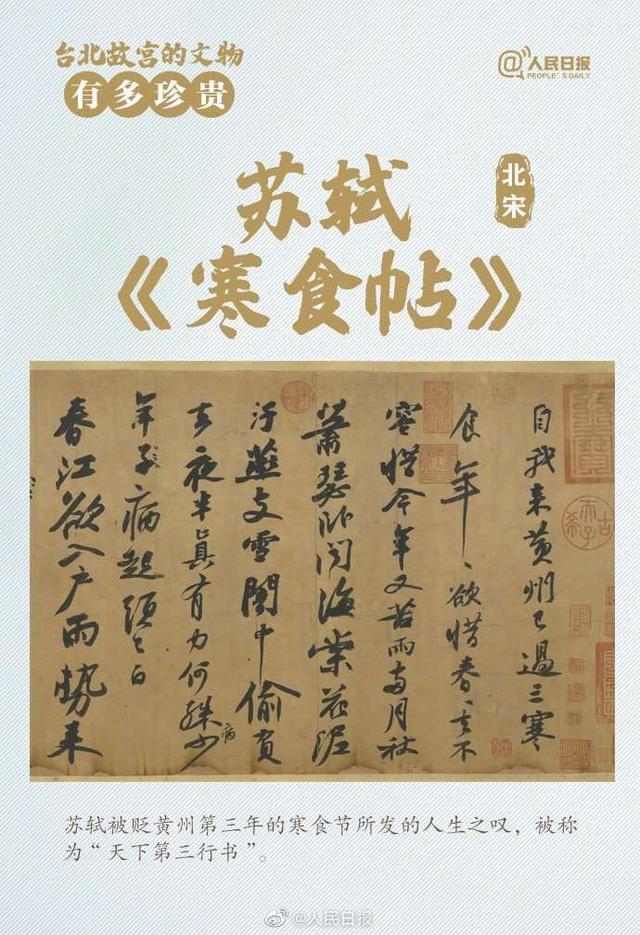 台北故宫的文物
有多珍贵
@人民日报
PEOPLE'S DAILY
苏轼
北宋
《寒食帖》
自我来黄州已過三寒
食年〻欲惜春〻去不
容惜今年又苦雨兩月秋
蕭瑟卧聞海棠花泥
汙燕支雪闇中偷負
去夜半真有力何殊少
病
年子病起頭已白
春江欲入户雨勢来
古希天子
苏轼被贬黄州第三年的寒食节所发的人生之叹，被称
为“天下第三行书”。
@人民日报